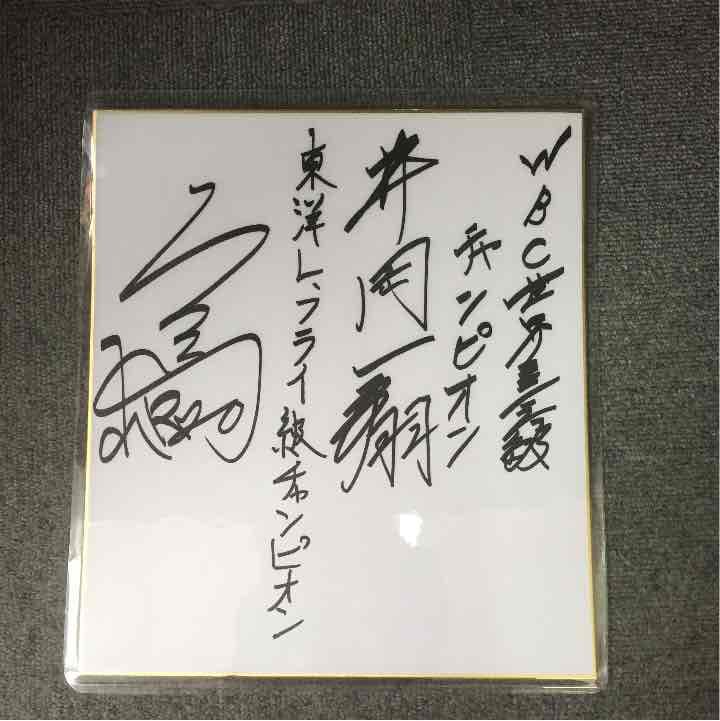 WBC世界ミニマム級
チャンピオン
井岡一翔
東洋L、フライ級チャンピオン